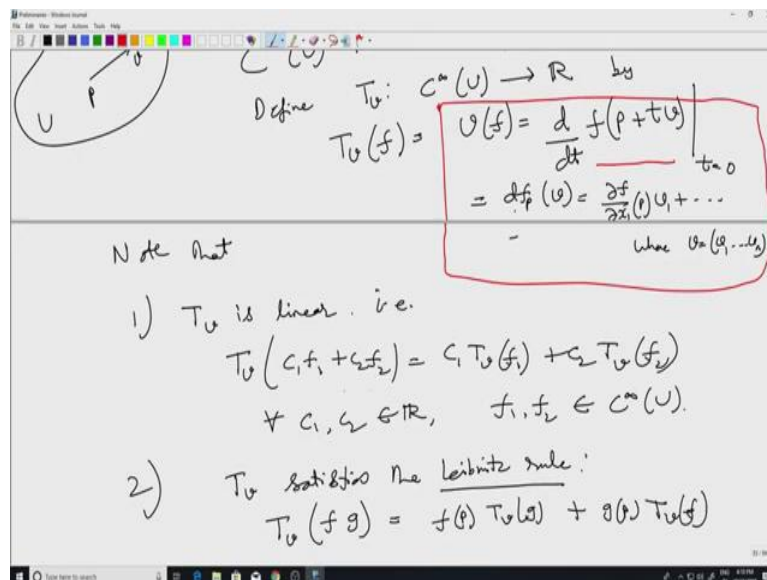 Preliminaries - Windows Journal
File Edit View Insert Actions Tools Help
C^∞(U) .
U P v
Define T_v : C^∞(U) → ℝ by
T_v(f) = v(f) = d/dt f(p + tv) |_{t=0}
= df_p(v) = ∂f/∂x_1 (p) v_1 + ...
where v=(v_1 ... v_n)
Note that
1) T_v is linear. i.e.
T_v(c_1 f_1 + c_2 f_2) = c_1 T_v(f_1) + c_2 T_v(f_2)
∀ c_1, c_2 ∈ ℝ, f_1, f_2 ∈ C^∞(U).
2) T_v satisfies the Leibnitz rule:
T_v(f g) = f(p) T_v(g) + g(p) T_v(f)
Type here to search
ENG